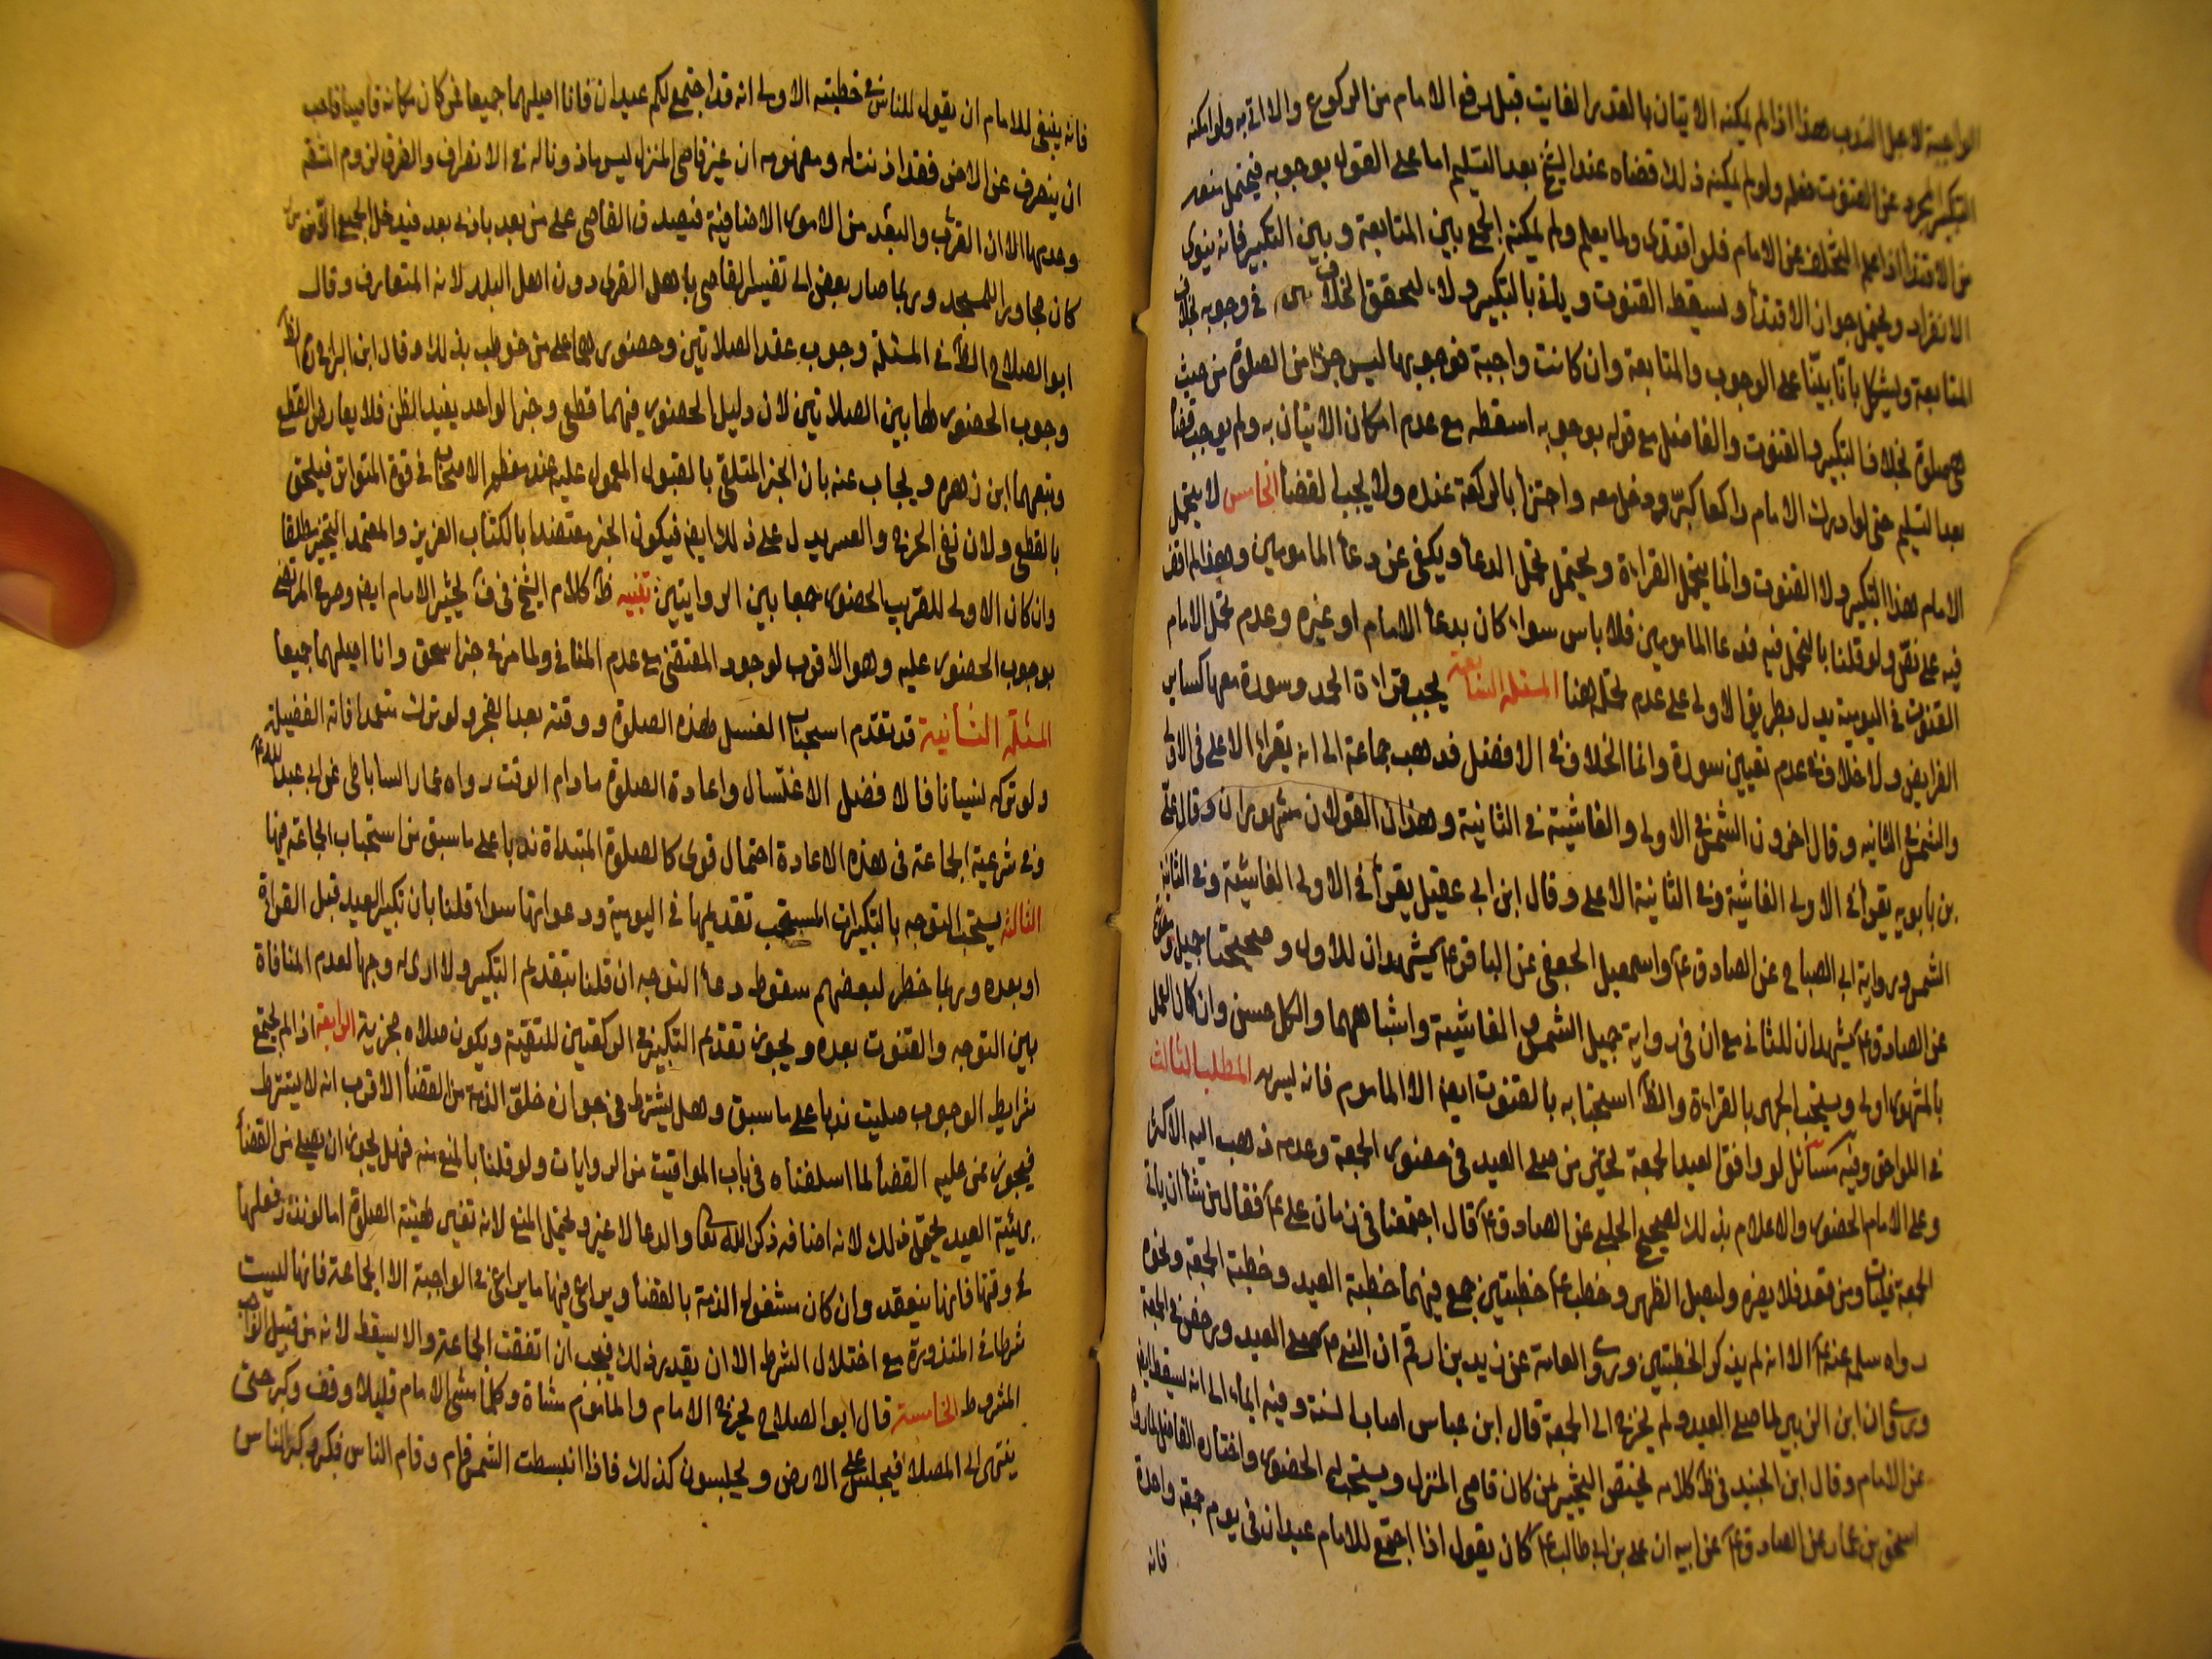 الواجبة لاجل الندب هذا اذا لم يمكنه الاتيان بالقدر الفايت قبل رفع الامام من الركوع والا اتى به ولو امكنه
التكبير المجرد عن القنوت فعله ولو لم يمكنه ذلك قضاه عند الشيخ بعد التسليم اما على القول بوجوبه فيحتمل منعه
من الاقتدا اذا علم التخلف عن الامام فلو اقتدى ولما يعلم ولم يمكنه الجمع بين المتابعة وبين التكبير فانه ينوى
الانفراد ويحتمل جواز الاقتدا ويسقط القنوت وياتى بالتكبير ولاء لتحقق الخلاف في وجوبه بخلاف
المتابعة ويشكل باتا بيناه على الوجوب والمتابعة وان كانت واجبة فوجوبها ليس جزا من الصلوة من حيث
هى صلوة بخلاف التكبير والقنوت والفاضل مع قوله بوجوبه اسقطه مع عدم امكان الاتيان به ولم يوجب قضا
بعد التسليم حتى لو ادرك الامام راكعا كبر ودخل معه واجتزا بالركعة عنده ولا يجب القضا الخامس لا يتحمل
الامام هذا التكبير ولا القنوت وانما يتحمل القراءة ويحتمل تحمل الدعا ويكفى عن دعا المامومين وهذا لم اقف
فيه على نص ولو قلنا بالتحمل فيه فدعا المامومين فلا باس سواء كان بدعا الامام او غيره وعدم تحمل الامام
القنوت في اليومية يدل بطريق الاولى على عدم تحمله هنا المسئلة السابعة يجب قراءة الحمد وسورة معها كساير
الفرايض ولا خلاف في عدم تعيين سورة وانما الخلاف في الافضل فذهب جماعة الى انه يقرا الاعلى في الاولى
والشمس في الثانيه وقال اخرون الشمس في الاولى والغاشية في الثانية وهذان القولان مشهوران وقال على
بن بابويه يقرا في الاولى الغاشية وفي الثانية الاعلى وقال ابن ابى عقيل يقرا في الاولى الغاشية وفي الثانية
الشمس ورواية ابى الصباح عن الصادق ع واسمعيل الجعفى عن الباقر ع يشهدان للاول وصحيحتا جميل
عن الصادق ع يشهدان للثانى مع ان في رواية جميل الشمس والغاشية واشباههما والكل حسن وان كان العمل
بالمشهور اولى ويستحب الجهر بالقراءة والظ استحبابه بالقنوت ايض الا الماموم فانه يسر به المطلب الثالث
في اللواحق وفيه مسائل لو وافق العيد الجمعة تخير من صلى العيد في حضور الجمعة وعدمه ذهب اليه الاكثر
وعلى الامام الحضور والاعلام بذلك لصحيح الحلبى عن الصادق ع قال اجتمعنا في زمان على ع فقال من شا ان ياتى
الجمعة فليات ومن قعد فلا يضره وليصل الظهر وخطب ع خطبتين جمع فيهما خطبة العيد وخطبة الجمعة ونحوه
رواه سلمة عنه ع الا انه لم يذكر الخطبتين وروى العامة عن زيد بن ارقم ان النبى ص صلى العيد ورخص في الجمعة
وروى ان ابن الزبير لما صلى العيد ولم يخرج الى الجمعة قال ابن عباس اصاب السنة وفيه ايماء الى انه يسقط ايض
عن الامام وقال ابن الجنيد في ظ كلامه يختص التخيير بمن كان قاصى المنزل ويستحب له الحضور واختاره الفاضل لما رواه
اسحق بن عمار عن الصادق ع عن ابيه ان على بن ابى طالب ع كان يقول اذا اجتمع للامام عيدان في يوم جمعة واحدة
فانه
فانه ينبغى للامام ان يقول للناس في خطبته الاولى انه قد اجتمع لكم عيدان فانا اصليهما جميعا فمن كان مكانه قاصيا فاحب
ان ينصرف عن الاخر فقد اذنت له ومفهومه ان غير قاصى المنزل ليس ماذونا له في الانصراف والفرق لزوم المشقة
وعدمها الا ان القرب والبعد من الامور الاضافية فيصدق القاصى على من بعد بادنى بعد فيدخل الجميع الا من
كان مجاورا للمسجد وربما صار بعض الى تفسير القاصى باهل القرى دون اهل البلد لانه المتعارف وقال
ابو الصلاح الظ في المسئلة وجوب عقد الصلاتين وحضورهما على من خوطب بذلك وقال ابن البراج الظ
وجوب الحضور لهاتين الصلاتين لان دليل الحضور فيهما قطعى وخبر الواحد يفيد الظن فلا يعارض القطع
وتبعهما ابن زهره ويجاب عنه بان الخبر المتلقى بالقبول المعمول عليه عند معظم الاصحاب في قوة المتواتر فيلحق
بالقطعى ولان نفى الحرج والعسر يدل على ذلك ايض فيكون الخبر معتضدا بالكتاب العزيز والمعتمد التخيير مطلقا
وان كان الاولى للقريب الحضور جمعا بين الروايتين تنبيه ظ كلام الشيخ في ف تخيير الامام ايض وصرح المرتضى
بوجوب الحضور عليه وهو الاقرب لوجود المقتضى مع عدم المنافى ولما مر في خبر اسحق وانا اصليهما جميعا
المسئلة الثانية قد تقدم استحباب الغسل لهذه الصلوة ووقته بعد الفجر ولو ترك متعمدا فاته الفضيلة
ولو تركه نسيانا فالافضل الاغتسال واعادة الصلوة مادام الوقت رواه عمار الساباطى عن ابى عبد الله ع
وفي شرعية الجماعة في هذه الاعادة احتمال قوى كالصلوة المبتداة ندبا على ما سبق من استحباب الجماعة فيها
الثالثة يستحب التوجه بالتكبيرات المستحب تقديمها في اليومية ودعواتها سواء قلنا بان تكبير العيد قبل القراءة
او بعده وربما خطر لبعضهم سقوط دعا التوجه ان قلنا بتقديم التكبير ولا ارى له وجها لعدم المنافاة
بين التوجه والقنوت بعده ويجوز تقديم التكبير في الركعتين للتقية ويكون صلاه مجزية الرابعة اذا لم تجتمع
شرايط الوجوب صليت ندبا على ما سبق وهل يشترط في جوازه خلو الذمة من القضا الاقرب انه لا يشترط
فيجوز ممن عليه القضا لما اسلفناه في باب المواقيت من الروايات ولو قلنا بالمنع منه فهل يجوز ان يصلى من القضا
بهيئة العيد يحتمل ذلك لانه اضافه ذكر الله تعا والدعا لا غير ويحتمل المنع لانه تغير لهيئة الصلوة اما لو نذر فعلها
في وقتها فانها تنعقد وان كان مشغول الذمة بالقضا ويراعى فيها ما يراعى في الواجبة الا الجماعة فانها ليست
شرطا في المنذورة مع اختلال الشرط الا ان يقيد بذلك فيجب ان اتفقت الجماعة والا سقط لانه من قبيل الواجب
المشروط الخامسة قال ابو الصلاح يخرج الامام والماموم مشاة وكلما مشى الامام قليلا وقف وكبر حتى
ينتهى الى المصلا فيجلس على الارض ويجلسون كذلك فاذا انبسطت الشمس قام وقام الناس فكبر وكبر الناس